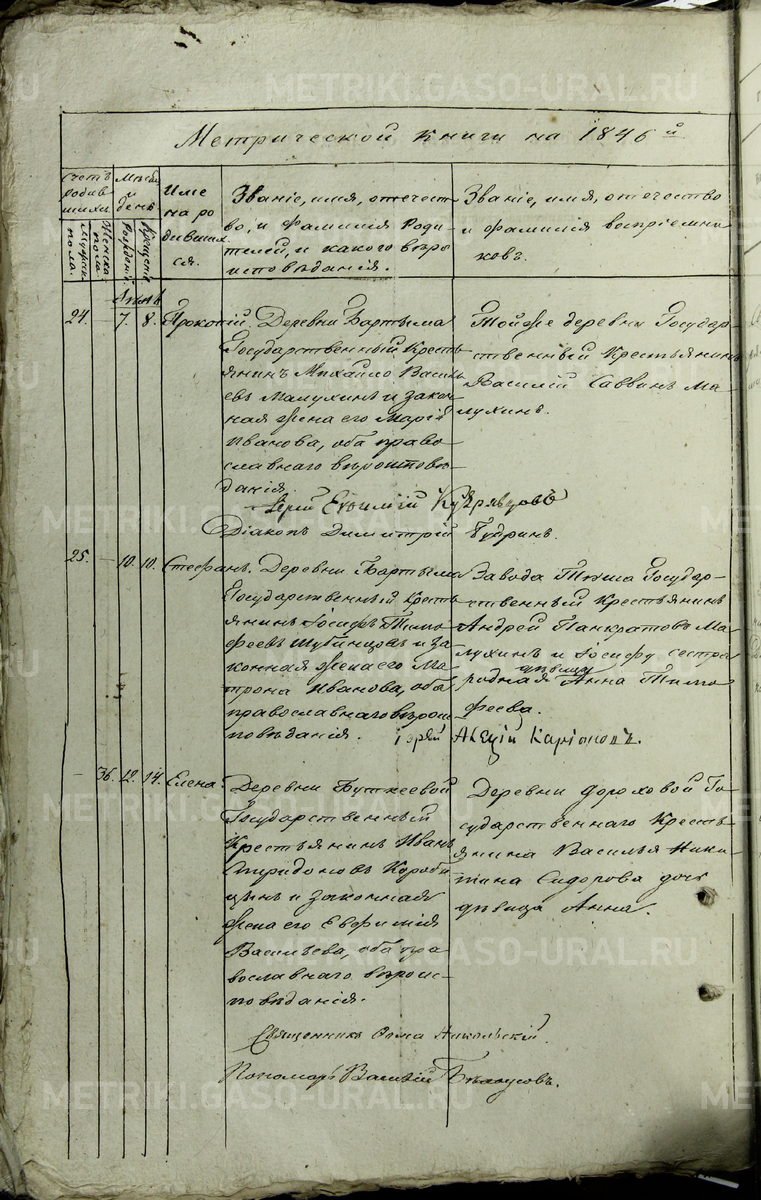 Метрической книги на 1846й
Счетъ родившихся
Мѣсяцъ и день
Имена родившихся.
Званіе, имя, отечество, и фамилія родителей, и какого вѣроисповѣданія.
Званіе, имя, отечество и фамилія воспріемниковъ.
Мужеска пола.
Женска пола.
Рожденія
Крещенія
24. – 7. 8. Прокопій. Деревни Бартыма
Государственный Кресть-
янинъ Михайло Василь-
евъ Малухинъ и закон-
ная жена его Марія
Иванова, оба право-
славнаго вѣроисповѣ-
данія.
Тойже деревни Государ-
ственный Крестьянинъ
Василій Саввинъ Ма-
лухинъ.
Іерей Евѳимій Кудрявцовъ
Діаконъ Димитрій
25. – 10. 10. Стефанъ. Деревни Бартыма
Государственный Кресть-
янинъ Іосифъ Тимо-
феевъ Шубинцовъ и за-
конная жена его Ма-
трона Иванова, оба
православнаго вѣрои-
сповѣданія.
Завода Тиша Государ-
ственный Крестьянинъ
Андрей Панкратовъ Ма-
лухинъ и Іосифу сестра
родная дѣвица Анна Тимо-
феева.
іерей Алексій Каріоновъ.
– 36. 12. 14. Елена. Деревни Буткеевой
Государственный
Крестьянинъ Иванъ
Спиридоновъ Кораби-
цынъ и законная
жена его Евфимія
Васильева, оба пра-
вославнаго вѣроис-
повѣданія.
Деревни Дороховой Го-
сударственнаго Кресть-
янина Василья Ники-
тина Сидорова дочь
дѣвица Анна.
Священникъ Ѳома Никольскій.
Пономарь Василій Бѣлоусовъ.
METRIKI.GASO-URAL.RU